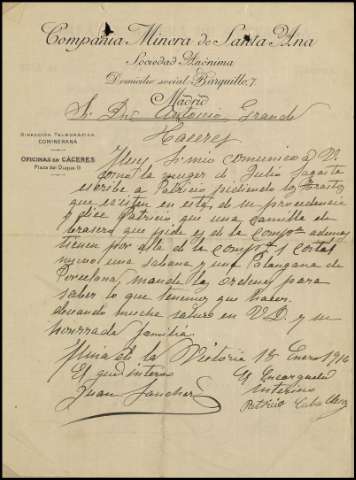 Compañia Minera de Santa Ana
Sociedad Anónima
Domicilio social: Barquillo, 7.
Madrid
Sr. Dn. Antonio Grande
Caseres
DIRECCIÓN TELEGRÁFICA
COMINERANA
OFICINAS DE CÁCERES
Plaza del Duque, 11
Muy Sr mio comunico á V
como la muger de Julio Sagasta
escribe a Patricio pidiendo los trastos
que existen en esta, de su procedencia
y dice Patricio que una camilla de
brasero que pide es de la compa. ademas
tienen por allá de la compa. 1
nuevo una sabana y una Palangana de
Porcelana, mande las ordenes para
saber lo que tenemos que hacer.
deseando mucha salud en V.D. y su
honrrada familia.
Mina de la Victoria 18 Enero 1916
El
Juan Sanchez
El Encargado
interino
Patricio